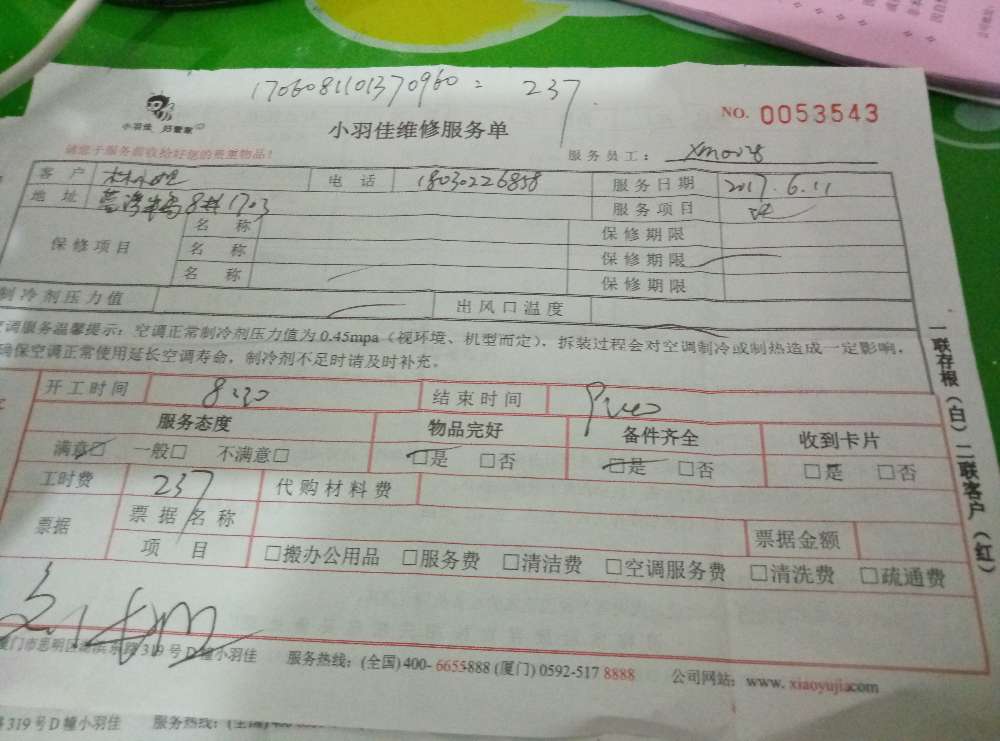 1706081101370960 = 237
小羽佳 妇管家
小羽佳维修服务单
NO. 0053543
请您于服务前收拾好您的贵重物品!
服务员工:
客户 电话 18030226858 服务日期 2017.6.11
地址 8 1703 服务项目
保修项目 名称 保修期限
名称 保修期限
名称 保修期限
制冷剂压力值 出风口温度
空调服务温馨提示:空调正常制冷剂压力值为0.45mpa(视环境、机型而定),拆装过程会对空调制冷或制热造成一定影响,
确保空调正常使用延长空调寿命,制冷剂不足时请及时补充。
开工时间 8:30 结束时间
服务态度 物品完好 备件齐全 收到卡片
满意□ 一般□ 不满意□ □是 □否 □是 □否 □是 □否
工时费 237 代购材料费
票据 票据名称 票据金额
项目 □搬办公用品 □服务费 □清洁费 □空调服务费 □清洗费 □疏通费
厦门市思明区湖滨东路319号D幢小羽佳 服务热线:(全国)400-6655888 (厦门) 0592-517 8888 公司网站:www.xiaoyujia.com
一联存根(白)二联客户(红)
路319号D幢小羽佳 服务热线:(全国)400